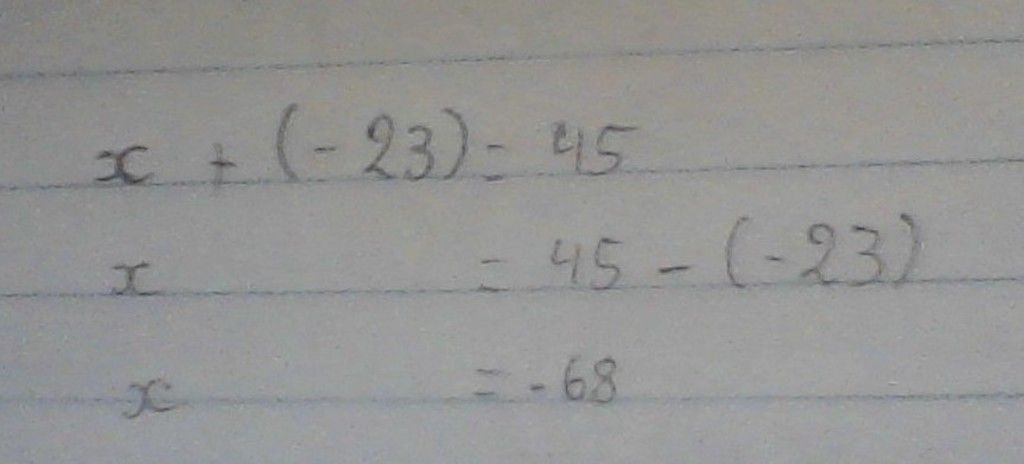 x + (-23) = 45
x = 45 - (-23)
x = -68